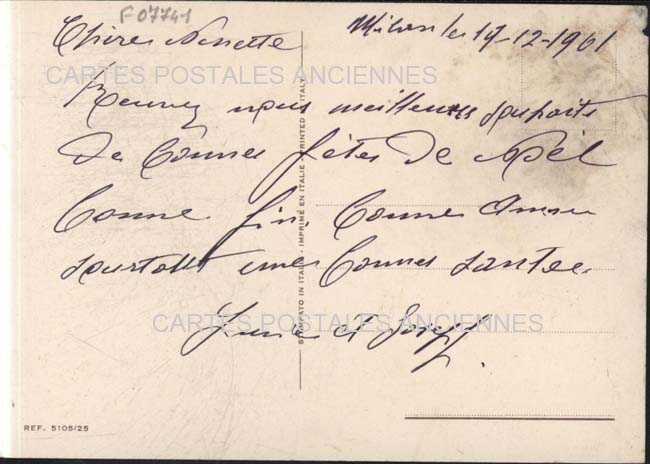 F07741
Milan le 17-12-1961
Chère Ninette
CARTES POSTALES ANCIENNES
Recevez nous meilleures souhaits
de bonnes fêtes de Noël
bonne fin bonne Année
surtout une bonnes santee
et Joseph
CARTES POSTALES ANCIENNES
STAMPATO IN ITALIA - IMPRIMÉ EN ITALIE - PRINTED IN ITALY
REF. 5105/25